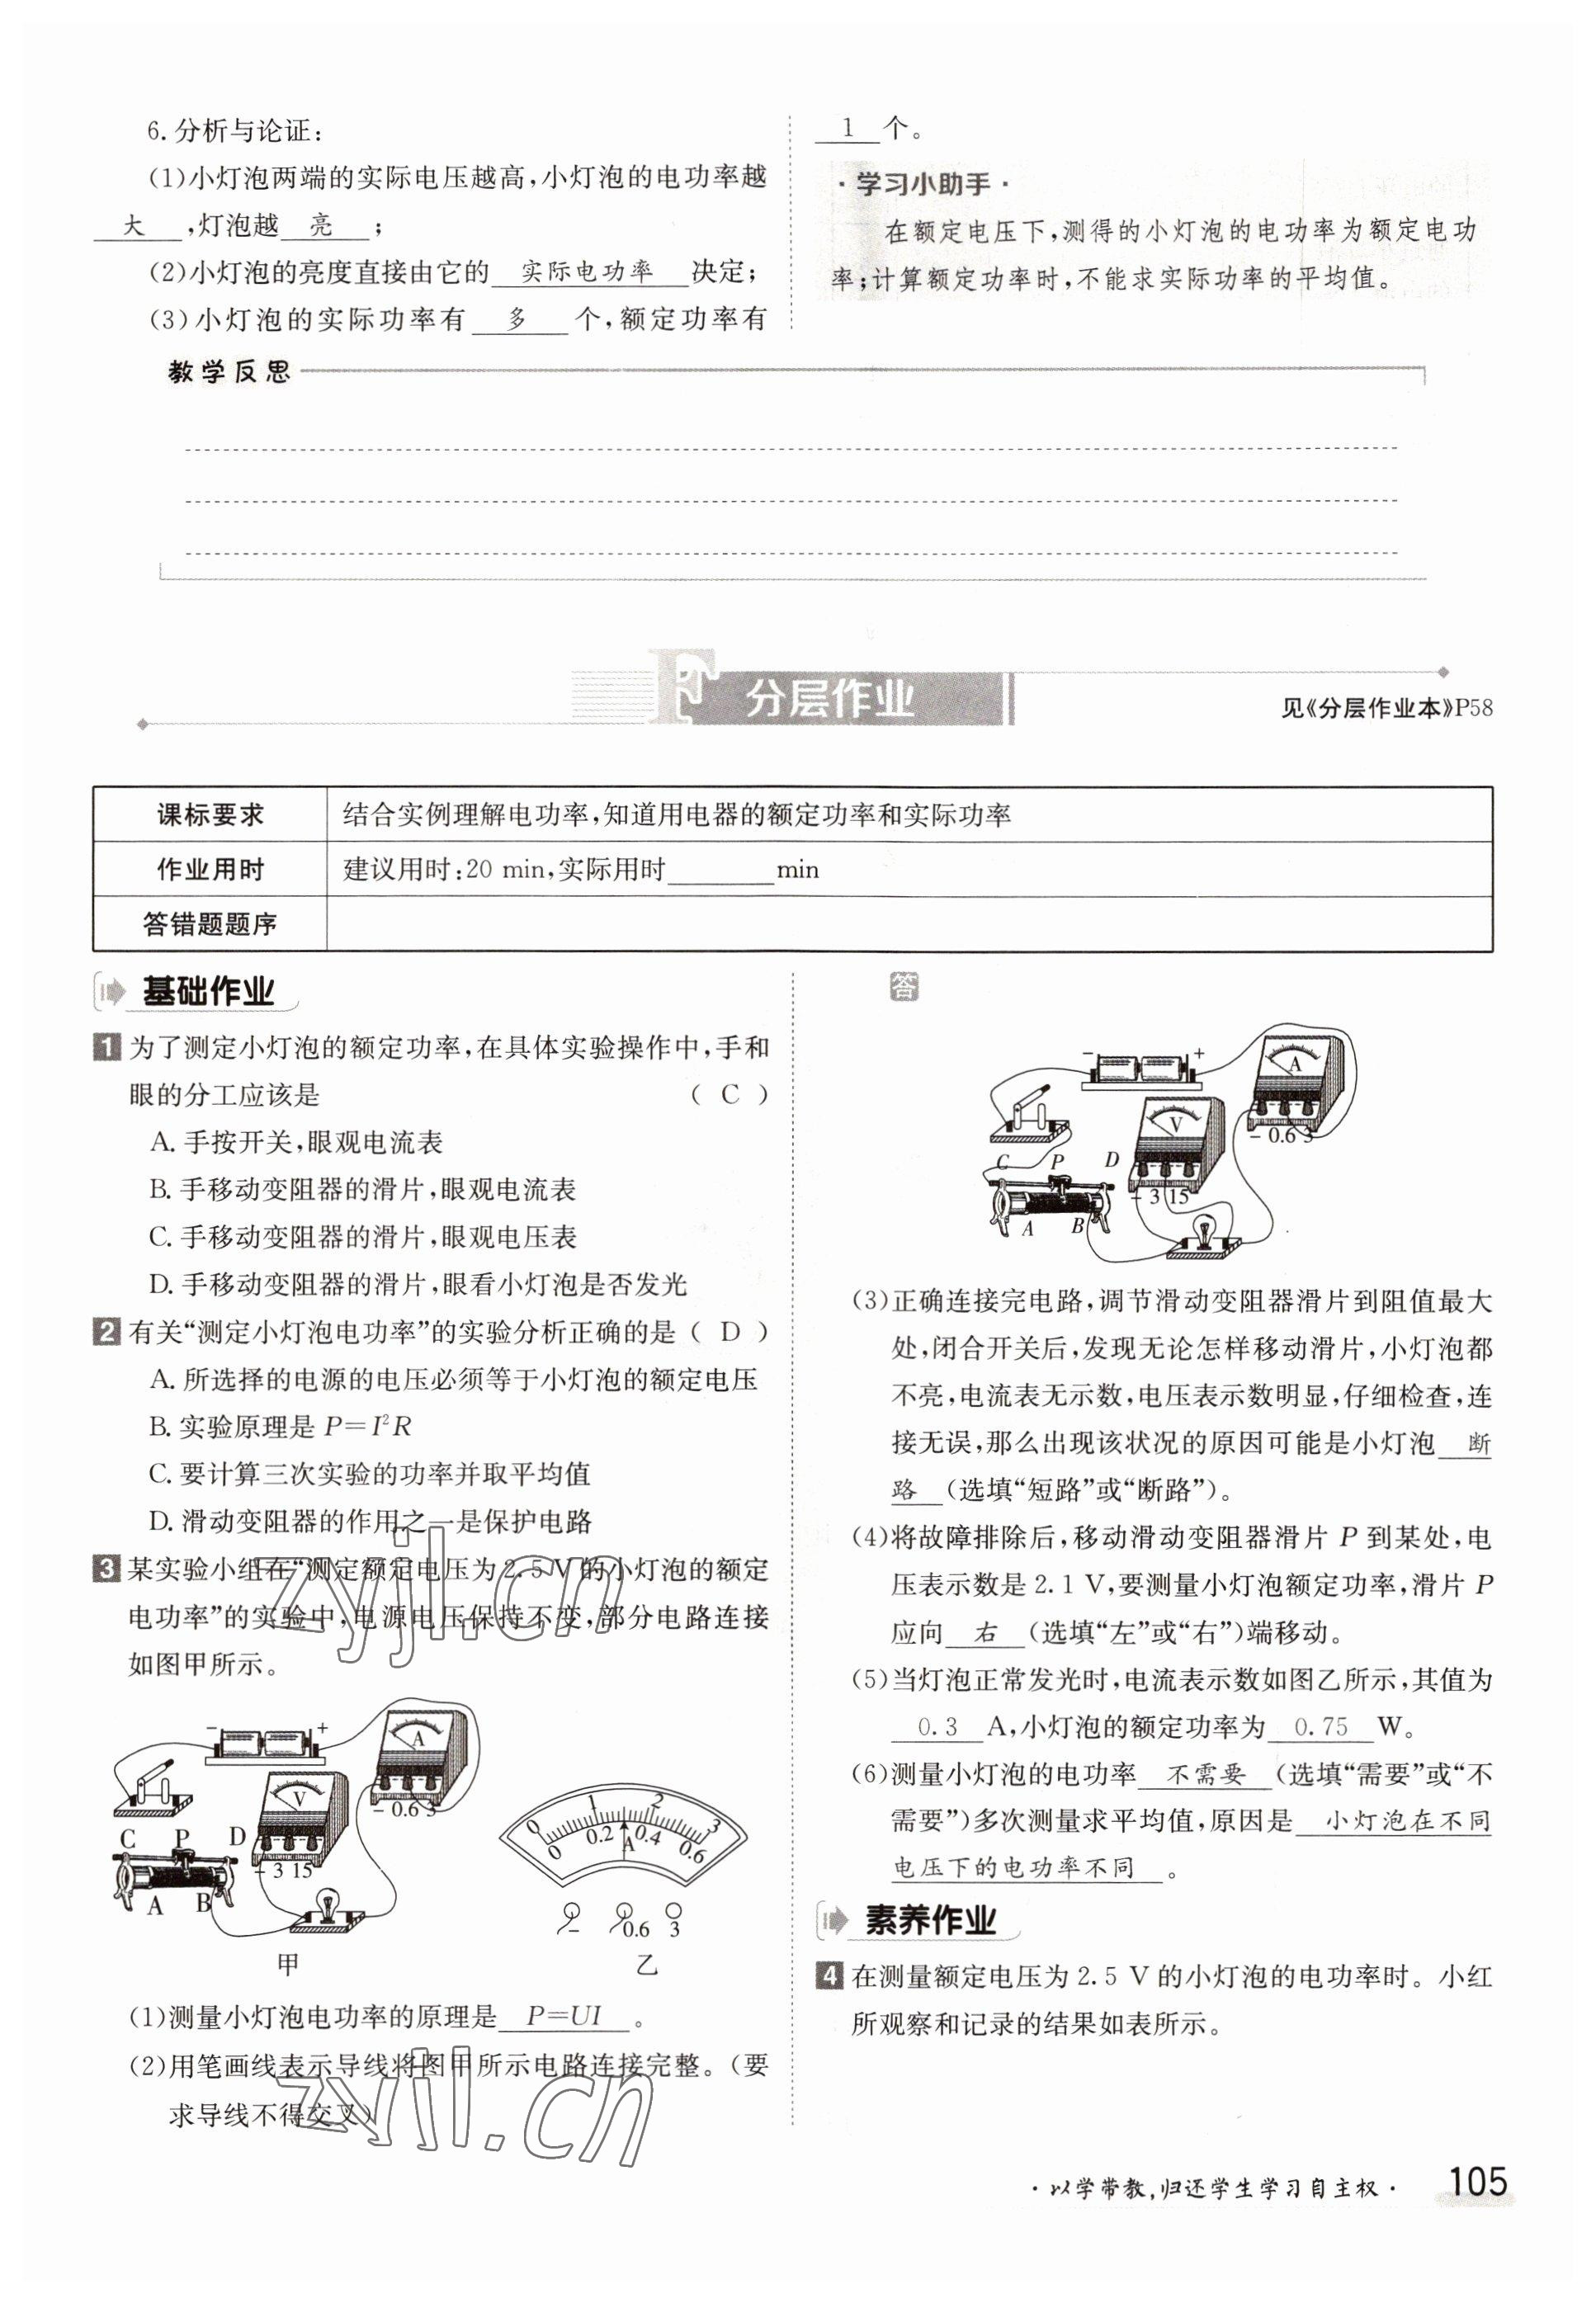 6.分析与论证:
(1)小灯泡两端的实际电压越高,小灯泡的电功率越
大,灯泡越 亮 ;
(2)小灯泡的亮度直接由它的 实际电功率 决定;
(3)小灯泡的实际功率有 多 个,额定功率有
1 个。
·学习小助手·
在额定电压下,测得的小灯泡的电功率为额定电功
率;计算额定功率时,不能求实际功率的平均值。
教学反思
F 分层作业
见《分层作业本》P58
课标要求 结合实例理解电功率,知道用电器的额定功率和实际功率
作业用时 建议用时:20 min,实际用时________min
答错题题序
基础作业
1 为了测定小灯泡的额定功率,在具体实验操作中,手和
眼的分工应该是 ( C )
A.手按开关,眼观电流表
B.手移动变阻器的滑片,眼观电流表
C.手移动变阻器的滑片,眼观电压表
D.手移动变阻器的滑片,眼看小灯泡是否发光
2 有关“测定小灯泡电功率”的实验分析正确的是( D )
A.所选择的电源的电压必须等于小灯泡的额定电压
B.实验原理是 P=I²R
C.要计算三次实验的功率并取平均值
D.滑动变阻器的作用之一是保护电路
3 某实验小组在“测定额定电压为2.5 V的小灯泡的额定
电功率”的实验中,电源电压保持不变,部分电路连接
如图甲所示。
zyjl.cn
- +
A
- 0.6 3
V
- 3 15
C P D
A B
甲
0 1 2 3
0 0.2 0.4 0.6
A
- 0.6 3
乙
(1)测量小灯泡电功率的原理是 P=UI 。
(2)用笔画线表示导线将图甲所示电路连接完整。(要
求导线不得交叉)
zyjl.cn
答
- +
A
- 0.6 3
V
- 3 15
C P D
A B
(3)正确连接完电路,调节滑动变阻器滑片到阻值最大
处,闭合开关后,发现无论怎样移动滑片,小灯泡都
不亮,电流表无示数,电压表示数明显,仔细检查,连
接无误,那么出现该状况的原因可能是小灯泡 断
路 (选填“短路”或“断路”)。
(4)将故障排除后,移动滑动变阻器滑片 P 到某处,电
压表示数是2.1 V,要测量小灯泡额定功率,滑片 P
应向 右 (选填“左”或“右”)端移动。
(5)当灯泡正常发光时,电流表示数如图乙所示,其值为
0.3 A,小灯泡的额定功率为 0.75 W。
(6)测量小灯泡的电功率 不需要 (选填“需要”或“不
需要”)多次测量求平均值,原因是 小灯泡在不同
电压下的电功率不同 。
素养作业
4 在测量额定电压为2.5 V的小灯泡的电功率时。小红
所观察和记录的结果如表所示。
·以学带教,归还学生学习自主权· 105